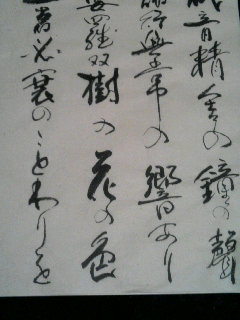 精舎の鐘の聲
行無常の響あり
娑羅双樹の花の色
者必衰のことわりを